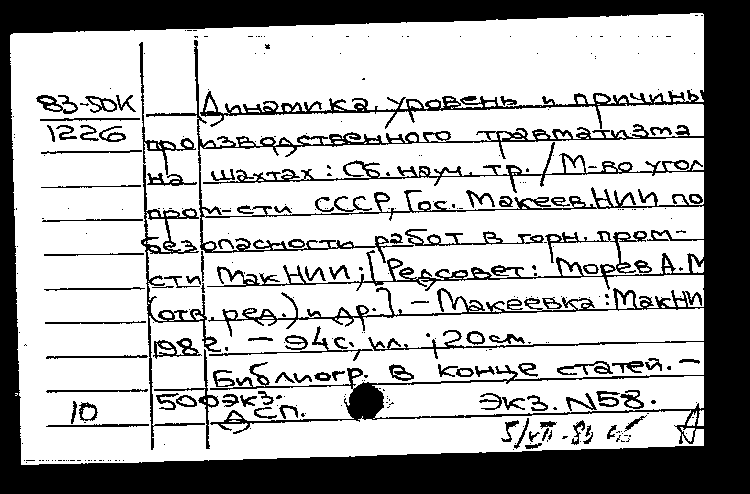 83-50К Динамика, уровень и причины
1226 производственного травматизма
на шахтах : Сб. науч. тр. / М-во угол
пром-сти СССР, Гос. Макеев. НИИ по
безопасности работ в горн. пром-
сти МакНИИ; [Редсовет: Морев А.М
(отв. ред.) и др.]. – Макеевка : МакНИ
1982. – 94 с., ил. ; 20 см.
Библиогр. в конце статей. –
10 500 экз.
ДСП. Экз. N58.
5/VII-83